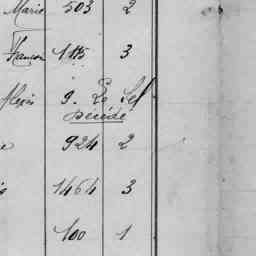 Marie 503 2
Francois 1185 3
Alexis 9. Le Sel
Décédé
e 924 2
is 1464 3
100 1